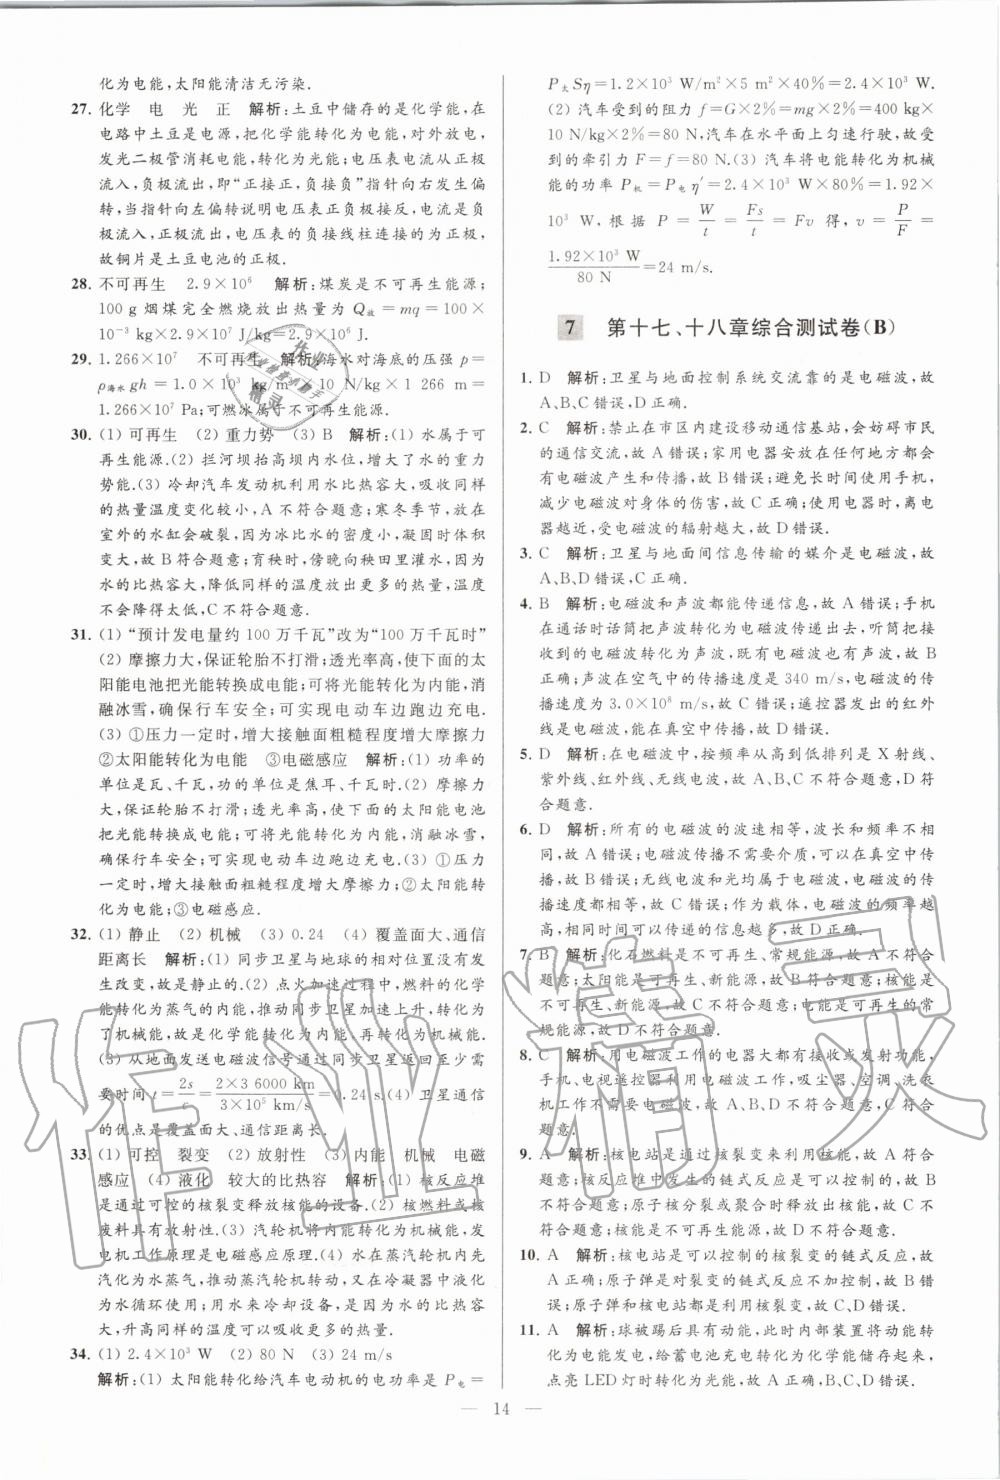 化为电能,太阳能清洁无污染.
27. 化学 电 光 正 解析:土豆中储存的是化学能,在
电路中土豆是电源,把化学能转化为电能,对外放电,
发光二极管消耗电能,转化为光能;电压表电流从正极
流入,负极流出,即“正接正,负接负”指针向右发生偏
转,当指针向左偏转说明电压表正负极接反,电流是负
极流入,正极流出,电压表的负接线柱连接的为正极,
故铜片是土豆电池的正极.
28. 不可再生 2.9×10⁶ 解析:煤炭是不可再生能源;
100 g 烟煤完全燃烧放出热量为 Q放=mq=100×
10⁻³ kg×2.9×10⁷ J/kg=2.9×10⁶ J.
29. 1.266×10⁷ 不可再生 解析:海水对海底的压强 p=
ρ海水gh=1.0×10³ kg/m³×10 N/kg×1 266 m=
1.266×10⁷ Pa;可燃冰属于不可再生能源.
30. (1) 可再生 (2) 重力势 (3) B 解析:(1) 水属于可
再生能源.(2) 拦河坝抬高坝内水位,增大了水的重力
势能.(3) 冷却汽车发动机利用水比热容大,吸收同样
的热量温度变化较小,A 不符合题意;寒冬季节,放在
室外的水缸会破裂,因为冰比水的密度小,凝固时体积
变大,故 B 符合题意;育秧时,傍晚向秧田里灌水,因为
水的比热容大,降低同样的温度放出更多的热量,温度
不会降得太低,C 不符合题意.
31. (1) “预计发电量约 100 万千瓦”改为“100 万千瓦时”
(2) 摩擦力大,保证轮胎不打滑;透光率高,使下面的太
阳能电池把光能转换成电能;可将光能转化为内能,消
融冰雪,确保行车安全;可实现电动车边跑边充电.
(3) ①压力一定时,增大接触面粗糙程度增大摩擦力
②太阳能转化为电能 ③电磁感应 解析:(1) 功率的
单位是瓦、千瓦,功的单位是焦耳、千瓦时.(2) 摩擦力
大,保证轮胎不打滑;透光率高,下面的太阳能电池
把光能转换成电能;可将光能转化为内能,消融冰雪,
确保行车安全;可实现电动车边跑边充电.(3) ①压力
一定时,增大接触面粗糙程度增大摩擦力;②太阳能转
化为电能;③电磁感应.
32. (1) 静止 (2) 机械 (3) 0.24 (4) 覆盖面大、通信
距离长 解析:(1) 同步卫星与地球的相对位置没有发
生改变,故是静止的.(2) 点火加速过程中,燃料的化学
能转化为蒸气的内能,推动同步卫星加速上升,转化为
了机械能,故是化学能转化为内能,再转化为机械能.
(3) 从地面发送电磁波信号通过同步卫星返回至少需
要时间 t=2s/c=2×3 6000 km/3×10⁵ km/s=0.24 s.(4) 卫星通信
的优点是覆盖面大、通信距离长.
33. (1) 可控 裂变 (2) 放射性 (3) 内能 机械 电磁
感应 (4) 液化 较大的比热容 解析:(1) 核反应堆
是通过可控的核裂变释放核能的设备.(2) 核燃料或核
废料具有放射性.(3) 汽轮机将内能转化为机械能,发
电机工作原理是电磁感应原理.(4) 水在蒸汽轮机内先
汽化为水蒸气,推动蒸汽轮机转动,又在冷凝器中液化
为水循环使用;用水来冷却设备,是因为水的比热容
大,升高同样的温度可以吸收更多的热量.
34. (1) 2.4×10³ W (2) 80 N (3) 24 m/s
解析:(1) 太阳能转化给汽车电动机的电功率是 P电=
P太Sη=1.2×10³ W/m²×5 m²×40%=2.4×10³ W.
(2) 汽车受到的阻力 f=G×2%=mg×2%=400 kg×
10 N/kg×2%=80 N,汽车在水平面上匀速行驶,故受
到的牵引力 F=f=80 N.(3) 汽车将电能转化为机械
能的功率 P机=P电η′=2.4×10³ W×80%=1.92×
10³ W,根据 P=W/t=Fs/t=Fv 得,v=P/F=
1.92×10³ W/80 N=24 m/s.
7 第十七、十八章综合测试卷(B)
1. D 解析:卫星与地面控制系统交流靠的是电磁波,故
A、B、C 错误,D 正确.
2. C 解析:禁止在市区内建设移动通信基站,会妨碍市民
的通信交流,故 A 错误;家用电器安放在任何地方都要
考虑电磁波干扰,故 B 错误;避免长时间使用手机,
减少电磁波对身体的伤害,故 C 正确;使用电器时,离电
器越近,受电磁波的辐射越大,故 D 错误.
3. C 解析:卫星与地面间信息传输的媒介是电磁波.
4. B 解析:电磁波和声波都能传递信息,故 A 错误;手机
在通话时话筒把声波转化为电磁波传递出去,听筒把接
收到的电磁波转化为声波,既有电磁波也有声波,故 B
正确;声波在空气中的传播速度是 340 m/s,电磁波的传
播速度为 3.0×10⁸ m/s,故 C 错误;遥控器发出的红外
线是电磁波,能在真空中传播,故 D 错误.
5. D 解析:在电磁波中,按频率从高到低排列是 X 射线、
紫外线、红外线、无线电波,故 A、B、C 不符合题意,D 符
合题意.
6. D 解析:所有的电磁波的波速相等,波长和频率不相
同,故 A 错误;电磁波的传播不需要介质,可以在真空中传
播,故 B 错误;无线电波和光均属于电磁波,电磁波的传
播速度都相等,故 C 错误;作为载体,电磁波的频率越
高,相同时间可以传递的信息越多,故 D 正确.
7. B 解析:化石燃料是不可再生、常规能源,故 A 不符合
题意;太阳能是可再生、新能源,故 B 符合题意;核能是
不可再生、新能源,故 C 不符合题意;电能是可再生的常
规能源,故 D 不符合题意.
8. C 解析:用电磁波工作的电器大都有接收或发射功能,
手机、电视遥控器利用电磁波工作,吸尘器、空调、洗衣
机三种电器不是利用电磁波工作的,故 A、B、D 不符合
题意,C 符合题意.
9. A 解析:核电站是通过核裂变来利用核能,故 A 符合
题意;核反应堆中发生的链式反应是可以控制的,故 B
不符合题意;原子核分裂或聚合时释放的能量是核能,
故 C 不符合题意;核能是不可再生能源,故 D 不符合
题意.
10. A 解析:核电站是可以控制的核裂变的链式反应,故
A 正确;原子弹是对裂变的链式反应不加控制,故 B 错
误;原子弹和核电站都是核裂变,故 C、D 错误.
11. A 解析:球被踢后具有动能,此时内部装置将动能转
化为电能,给蓄电池充电转化为化学能储存起来,
点亮 LED 灯时转化为光能,故 A 正确,B、C、D 错误.
14
作业精灵